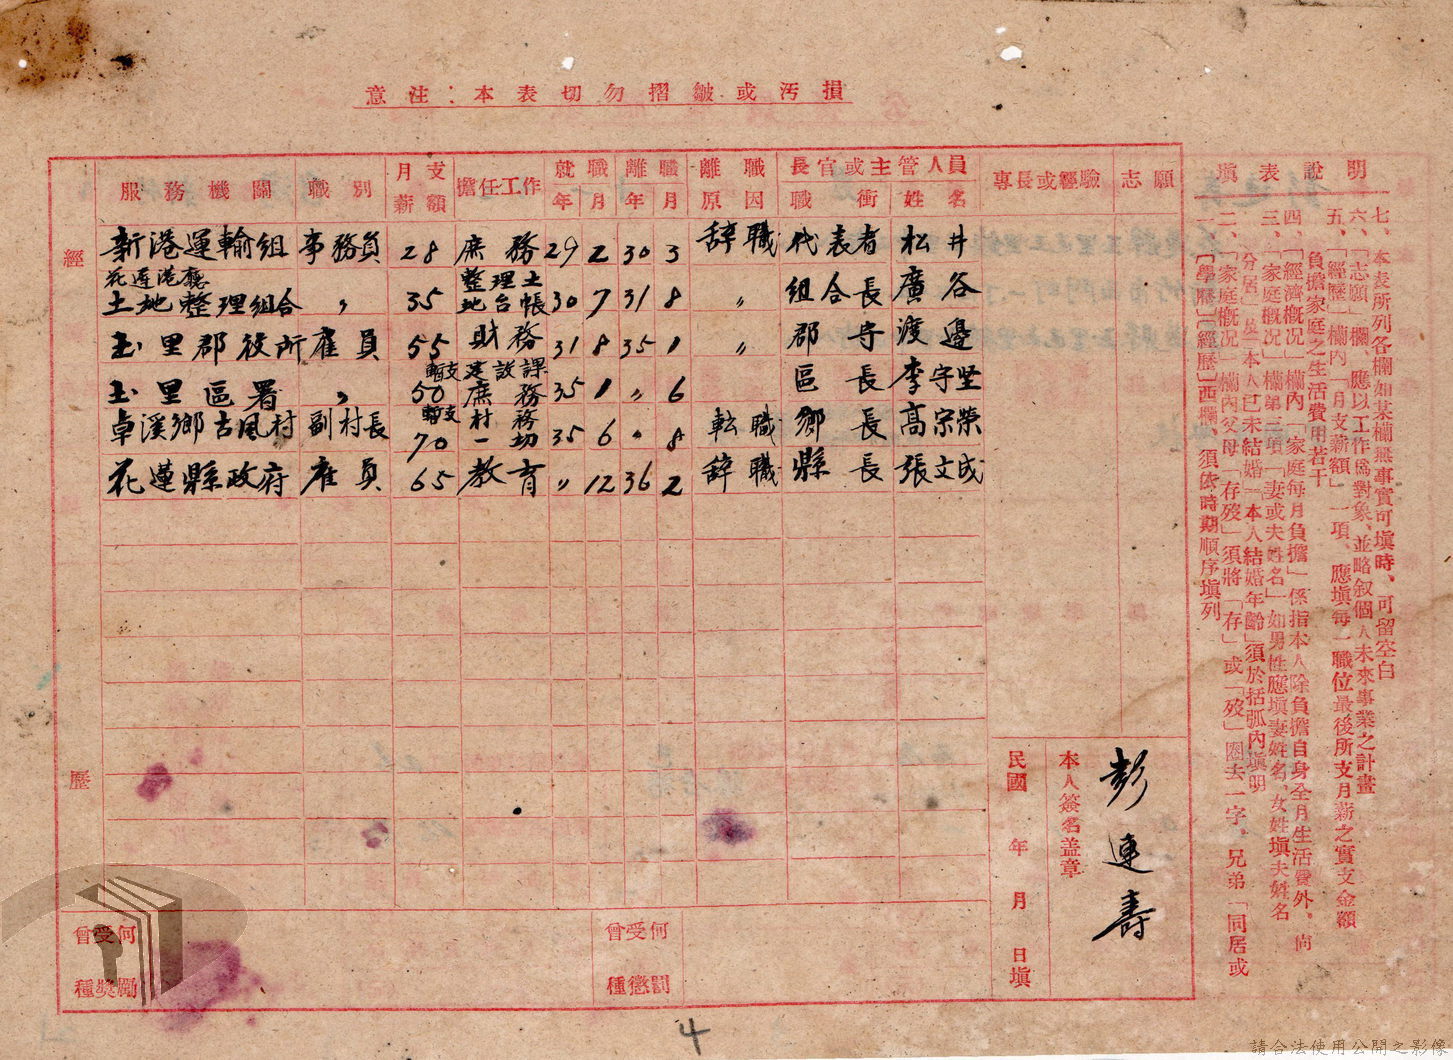 意注：本表切勿摺皺或汚損
經歷
服務機關 職別 月支薪額 擔任工作 就職年月 離職年月 離職原因 長官或主管人員 職銜 姓名 專長或經驗 志願
新港運輸組 事務員 28 庶務 29 2 30 3 辞職 代表者 松井
花蓮港廳土地整理組合 〃 35 整理土地台帳 30 7 31 8 〃 組合長 廣谷
玉里郡役所 雇員 55 財務 31 8 35 1 〃 郡守 渡邊
玉里區署 〃 暫支50 建設課庶務 35 1 〃 6 區長 李守坚
卓溪鄉古風村 副村長 暫支70 村務一切 35 6 〃 8 転職 鄉長 高宗榮
花蓮縣政府 雇員 65 教育 〃 12 36 2 辞職 縣長 張文成
曾受何種獎勵
曾受何種懲罰
民國 年 月 日填
本人簽名盖章
彭連壽
填表說明
一、「學歷」「經歷」兩欄、須依時期順序填列
二、「家庭概况」欄內父母「存歿」須將「存」或「歿」圈去一字。兄弟「同居或
分居」及「本人已未結婚」「本人結婚年齡」須於括弧內填明
三、「家庭概况」欄第三項「妻或夫姓名」如男性應填妻姓名、女姓填夫姓名
四、「經濟概况」欄內「家庭每月負擔」係指本人除負擔自身全月生活費外。尚
負擔家庭之生活費用若干
五、「經歷」欄內「月支薪額」一項、應填每一職位最後所支月薪之實支金額
六、「志願」欄、應以工作爲對象、並略叙個人未來事業之計畫
七、本表所列各欄如某欄無事實可填時、可留空白
4
請合法使用公開之影像